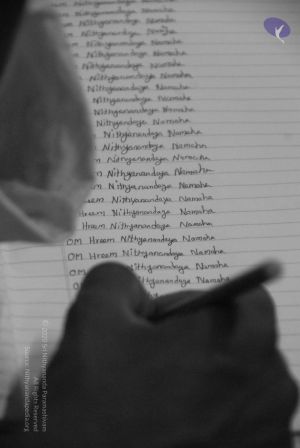 om Nithyanandeya Namaha
Nithyanandeya Namaha
Nithyanandeya Namaha
Nithyanandeya Namaha
Nithyanandeya Namaha
Nithyanandeya Namaha
Nithyanandeya Namaha
Nithyanandeya Namaha
Nithyanandeya Namaha
Nithyanandeya Namaha
Nithyanandeya Namaha
Nithyanandeya Namaha
Nithyanandeya Namaha
Nithyanandeya Namaha
m Nithyanandeya Namaha
m Nithyanandeya Namaha
m Nithyanandeya Namaha
eem Nithyanandeya Namaha
Hreem Nithyanandeya Namaha
Hreem Nithyanandeya Namaha
OM Hreem Nithyanandeya Namaha
OM Hreem Nithyanandeya Namaha
OM Nithyanandeya Namaha
Nithyanandeya Namaha
© 2020 Sri Nithyananda Paramashivam
All Rights Reserved
Source: Nithyanandapedia.org